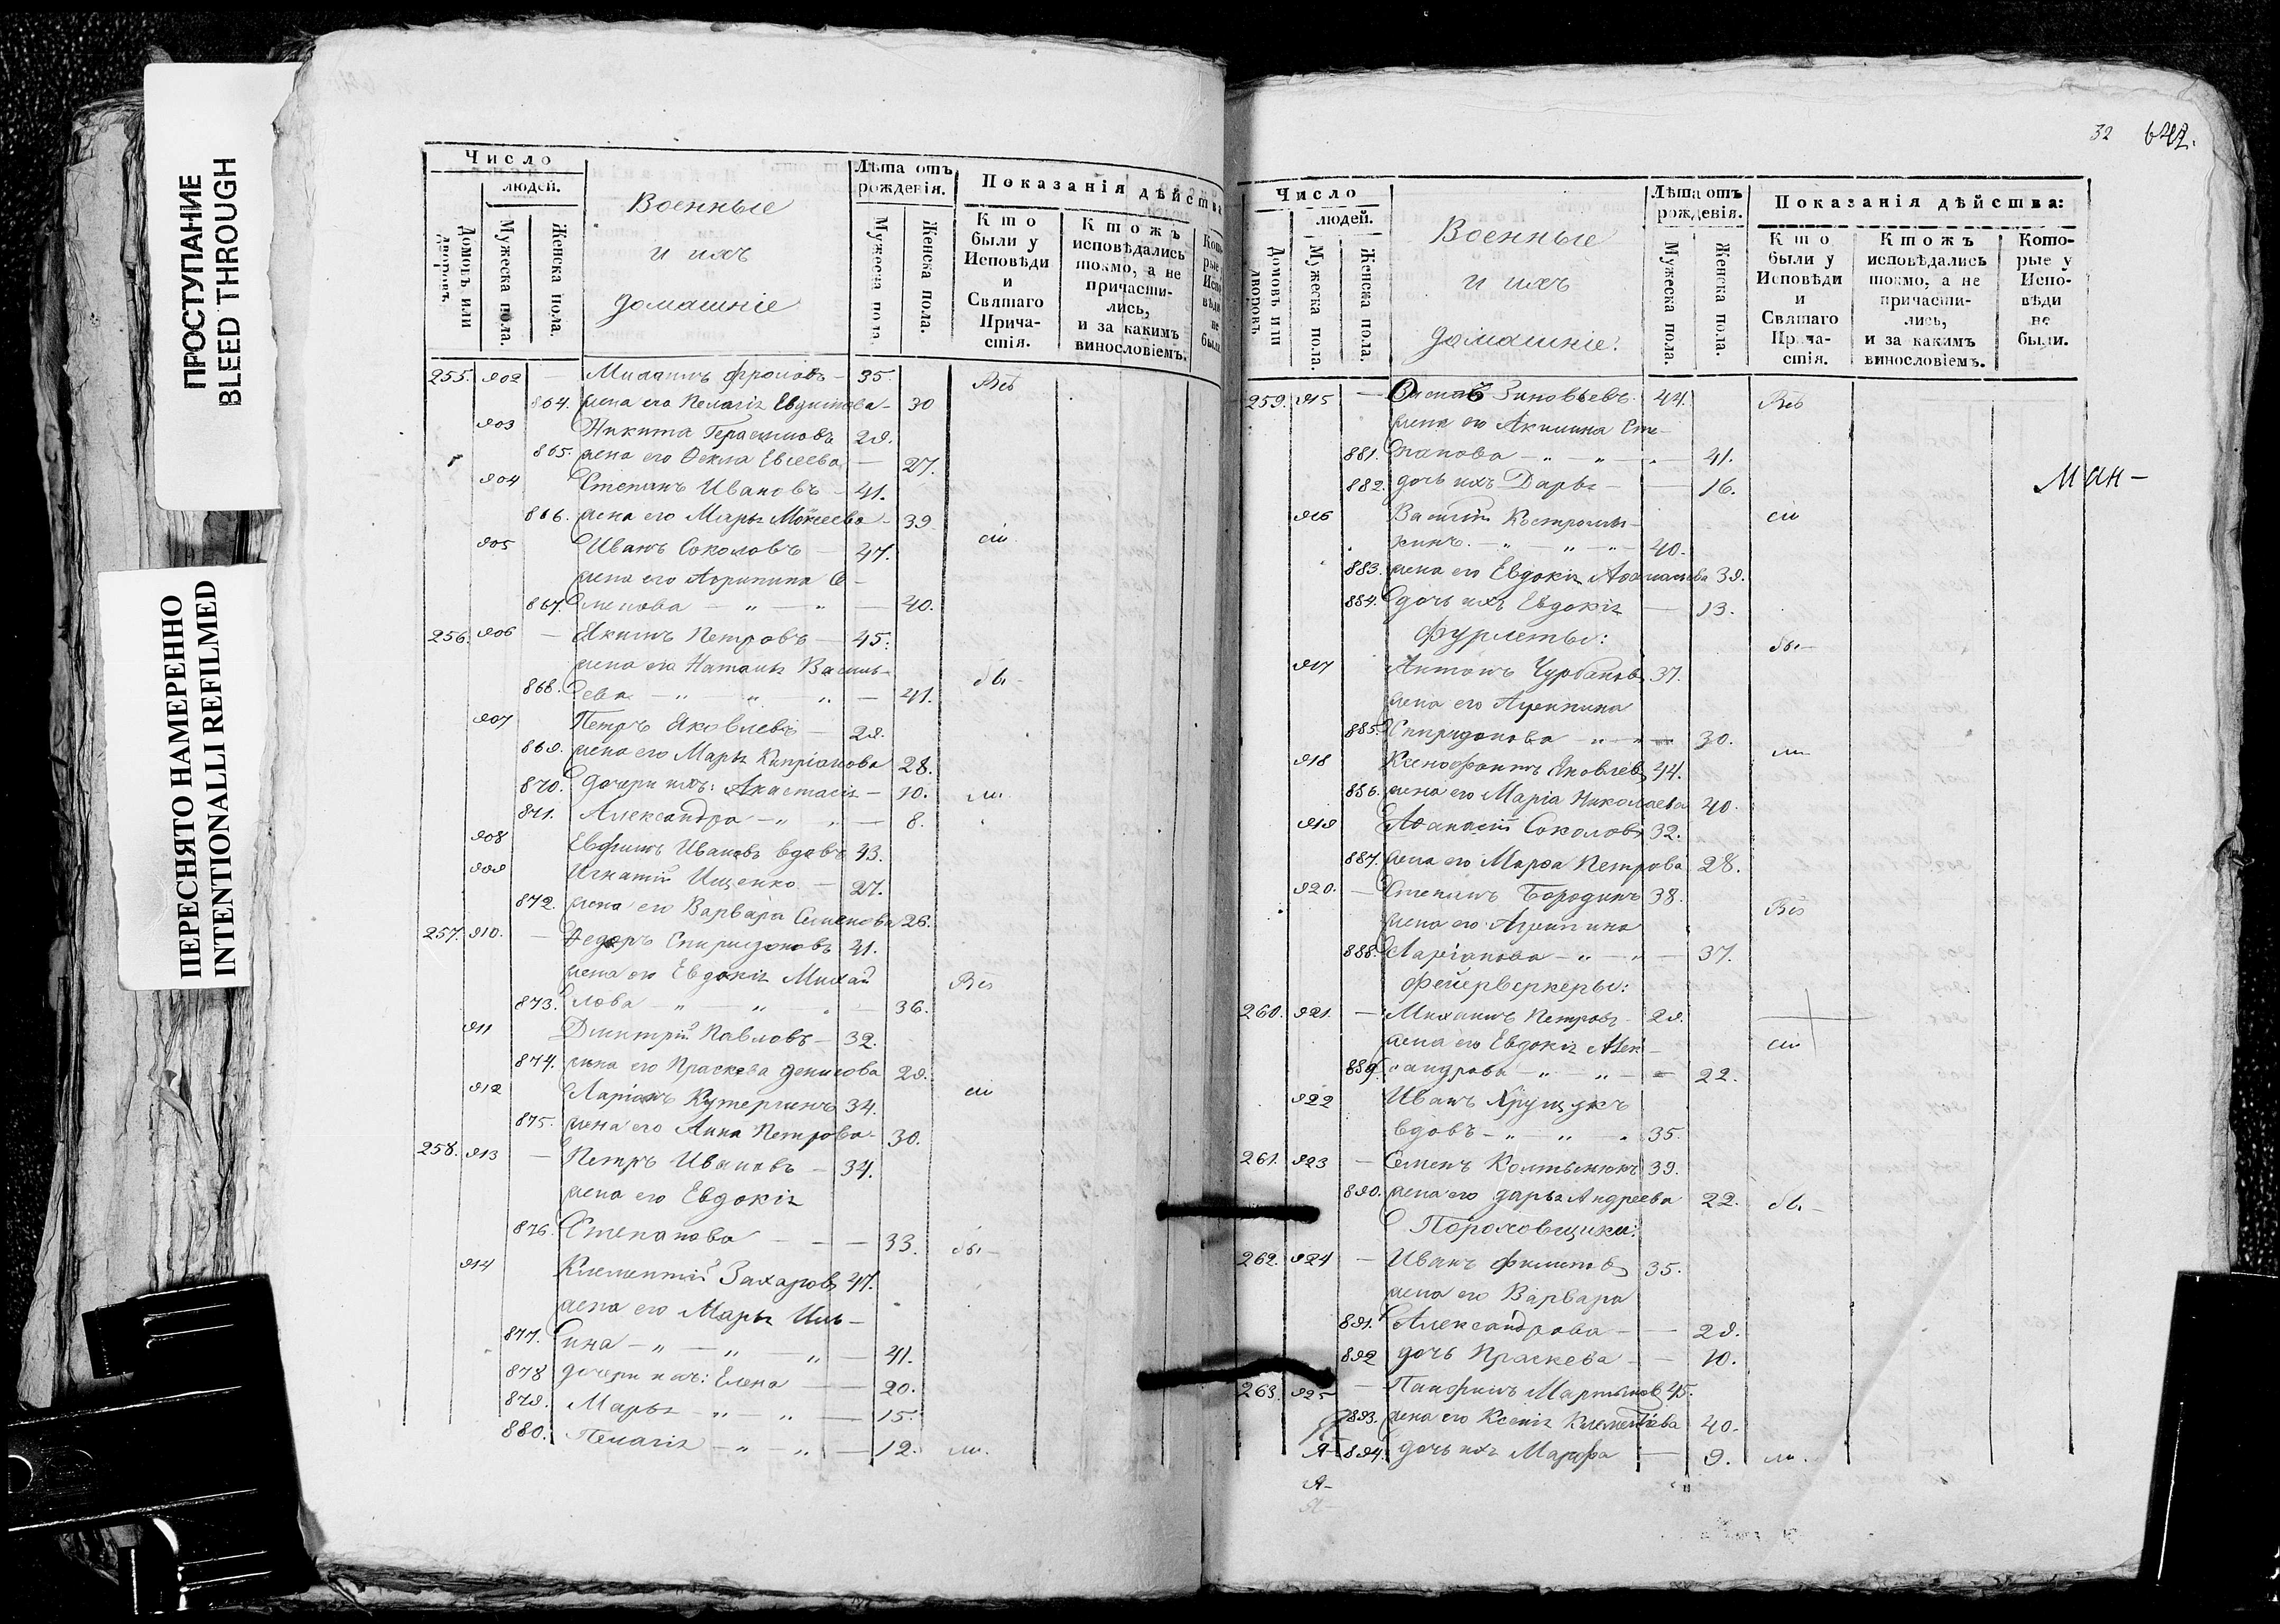 ПРОСТУПАНИЕ
BLEED THROUGH
ПЕРЕСНЯТО НАМЕРЕННО
INTENTIONALLI REFILMED
Число
людей.
Домовъ или дворовъ.
Мужеска пола.
Женска пола.
Военные
и ихъ
домашніе
Лѣта отъ рожденія.
Мужеска пола
Женска пола.
Показанія дѣйства
Кто были у Исповѣди и Святаго Прича-стія.
Ктожъ исповѣдались токмо, а не причасти-лись, и за какимъ винословіемъ.
255. 902 — Фроловъ — 35. Всѣ
864. жена его Пелагіѧ — 30
903 Никита Герасимовъ 29.
865. жена его Ѳекла Евсеева — 27.
904 Степанъ Ивановъ — 41.
866. жена его Марьѧ Моисеева — 39
сіи
905 Иванъ Соколовъ — 47.
жена его Агрипина Се-
867. менова — „ — „ — 40.
256. 906 — Якимъ Петровъ — 45.
жена его Натальѧ Василь-
868. ева — „ „ „ — 41. бы-
907 Петръ Яковлевъ — 29.
869. жена его Марьѧ Кипріанова 28.
870. дочери ихъ: Анастасіѧ — 10. ли.
871. Александра — „ „ — 8.
908 Евфимъ Ивановъ вдовъ 43.
909 Игнатій Ищенко — 27.
872. жена его Варвара Семенова 26.
257. 910. — Ѳедоръ Спиридоновъ 41.
жена его Евдокіѧ Михай
873. лова — „ „ „ — 36. Всѣ
911 Дмитрій Павловъ — 32.
874. жена его Праскева Денисова 29.
912 Ларіонъ Кутергинъ 34. сіи
875. жена его Анна Петрова — 30.
258. 913 — Петръ Ивановъ — 34.
жена его Евдокіѧ
876. Степанова — — — 33. бы-
914 Климентій Захаровъ 47.
жена его Марьѧ Иль-
877. ина — „ — „ — „ — 41.
878 дочери ихъ: Елена — — 20.
879. Марьѧ — „ — „ — 15.
880. Пелагіѧ — „ — „ — 12. ли.
32 642.
Число
людей.
Домовъ или дворовъ
Мужеска пола
Женска пола.
Военные
и ихъ
домашніе.
Лѣта отъ рожденія.
Мужеска пола.
Женска пола.
Показанія дѣйства:
Кто были у Исповѣди и Святаго Прича-стія.
Ктожъ исповѣдались токмо, а не причасти-лись, и за какимъ винословіемъ.
Кото-рые у Испо-вѣди не были.
259. 915 — Зиновьевъ. 44. Всѣ
жена его Акилина Сте-
881. панова — „ — „ — „ 41.
882. дочь ихъ Дарьѧ — — 16.
Ман-
916 Василій Костромы-
сіи
кинъ. — „ — „ — „ 40.
883. жена его Евдокіѧ Аѳанасьева 39.
884. дочь ихъ Евдокіѧ — 13.
Фурлеты:
бы-
917 Антонъ Чурбановъ 37.
жена его Агрипина
885. Спиридонова — „ „ — 30.
ли
918 Ксенофонтъ Яковлевъ 44.
886. жена его Маріа Николаева 40.
919 Аѳанасій Соколовъ 32.
887. жена его Марѳа Петрова 28.
920. — Степанъ Бородинъ 38.
Всѣ
жена его Агрипина
888. Ларіонова — „ — „ — 37.
Фейерверкеры:
260. 921. — Михаилъ Петровъ — 29.
жена его Евдокіѧ Алек- сіи
889. сандрова — „ — „ — 22.
922 Иванъ
вдовъ — „ — „ „ 35.
261. 923 — Семенъ 39.
890. жена его Дарьѧ Андреева 22. бы-
Пороховщики:
262. 924 — Иванъ Филиповъ 35.
жена его Варвара
891. Александрова — — 29.
892 дочь Праскева — — 10.
263. 925 — Панфилъ Мартыновъ 45.
893. жена его Ксеніѧ Климентьева 40.
894. дочь ихъ Марфа — 9. ли.